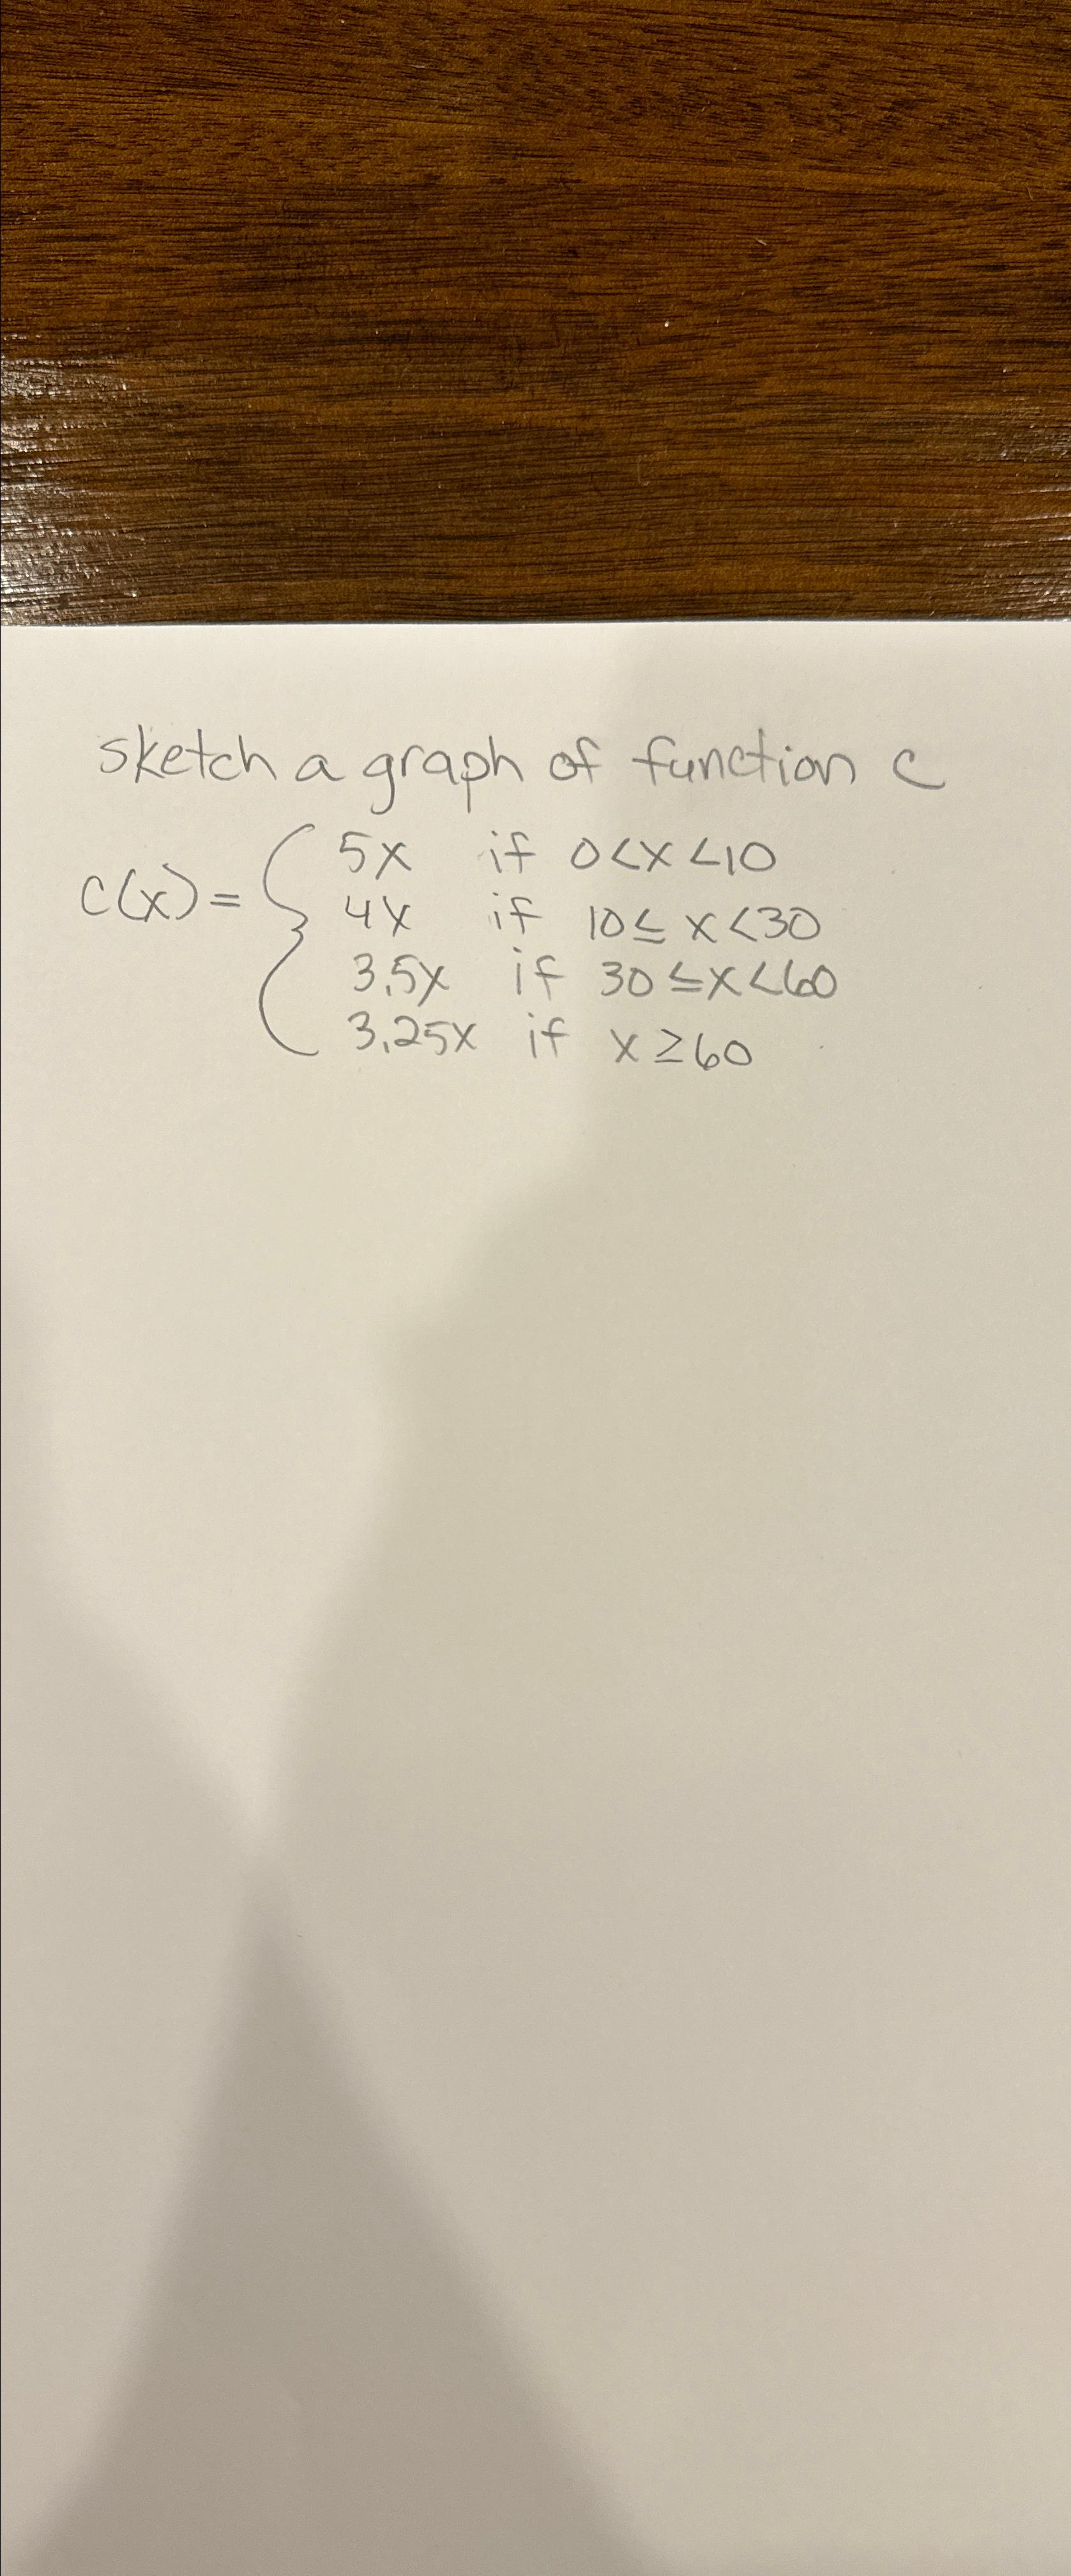 sketch a graph of function c
c(x) = { 5x if 0<x<10
4x if 10≤x<30
3.5x if 30≤x<60
3.25x if x≥60